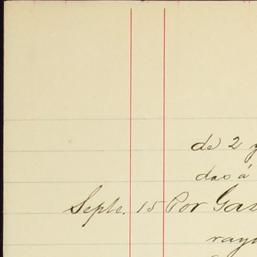 de 2 y
das á
Septe. 15 Por Gas
rayo